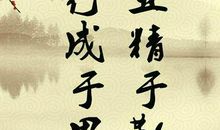 业精于勤
行成于思